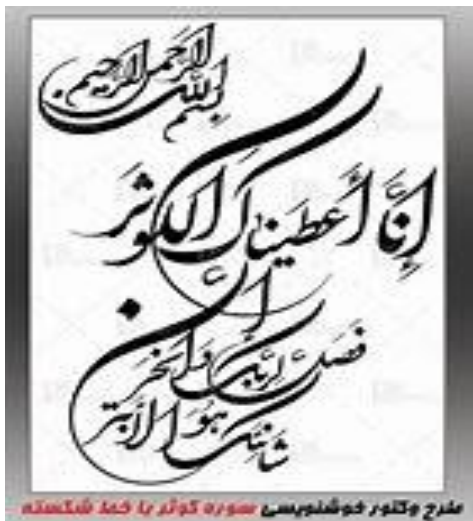 بسم الله الرحمن الرحیم
إِنَّا أَعطَینَاكَ الكَوثَرَ
فَصَلِّ لِرَبِّكَ وَانحَر
إِنَّ شَانِئَكَ هُوَ الأَبتَر
طرح وکتور خوشنویسی سوره کوثر با خط شکسته